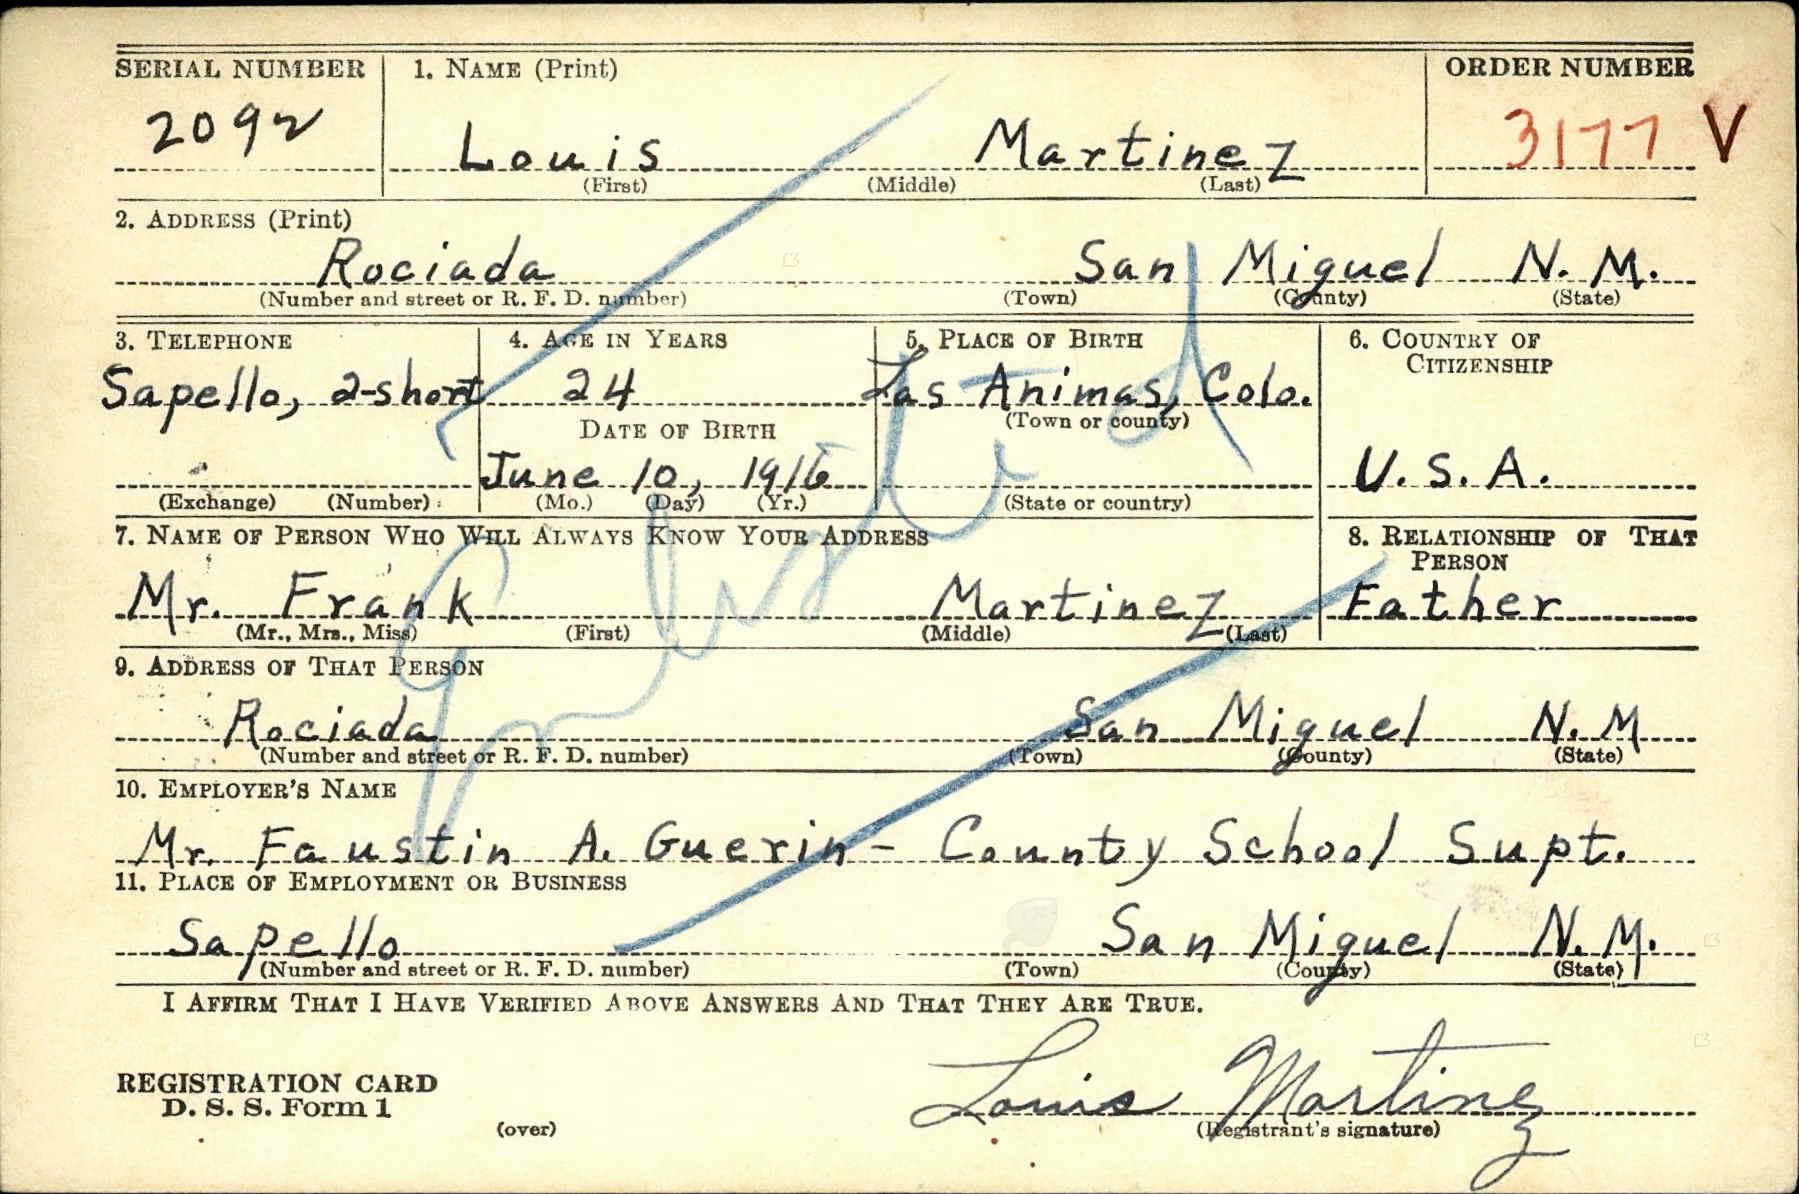 SERIAL NUMBER 1. NAME (Print) ORDER NUMBER
2092 Louis Martinez 3177 V
(First) (Middle) (Last)
2. ADDRESS (Print)
Rociada San Miguel N. M.
(Number and street or R. F. D. number) (Town) (County) (State)
3. TELEPHONE 4. AGE IN YEARS 5. PLACE OF BIRTH 6. COUNTRY OF
CITIZENSHIP
Sapello, 2-short 24 Las Animas, Colo.
(Town or county)
DATE OF BIRTH
June 10, 1916 U. S. A.
(Exchange) (Number) (Mo.) (Day) (Yr.) (State or country)
Enlisted
7. NAME OF PERSON WHO WILL ALWAYS KNOW YOUR ADDRESS 8. RELATIONSHIP OF THAT
PERSON
Mr. Frank Martinez Father
(Mr., Mrs., Miss) (First) (Middle) (Last)
9. ADDRESS OF THAT PERSON
Rociada San Miguel N. M
(Number and street or R. F. D. number) (Town) (County) (State)
10. EMPLOYER'S NAME
Mr. Faustin A. Guerin - County School Supt.
11. PLACE OF EMPLOYMENT OR BUSINESS
Sapello San Miguel N. M.
(Number and street or R. F. D. number) (Town) (County) (State)
I AFFIRM THAT I HAVE VERIFIED ABOVE ANSWERS AND THAT THEY ARE TRUE.
REGISTRATION CARD
D. S. S. Form 1 Louis Martinez
(over) (Registrant's signature)